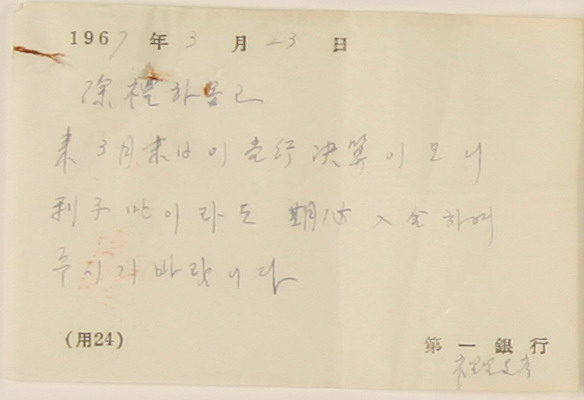 1967 年 3 月 23 日
除禮하옵고
来 3月末日이 當行 决算이오니
利子만이라도 期必 入金하여
주시기 바랍니다
(用24)
第一銀行